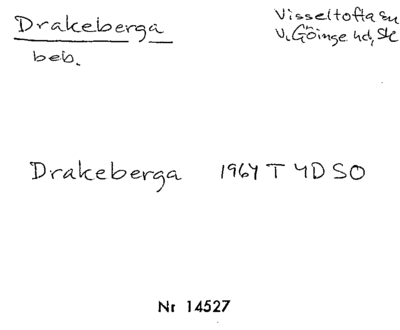 Drakeberga
Visseltofta sn
V. Göinge hd, Sk
beb.
Drakeberga 1964 T 4D SO
Nr 14527